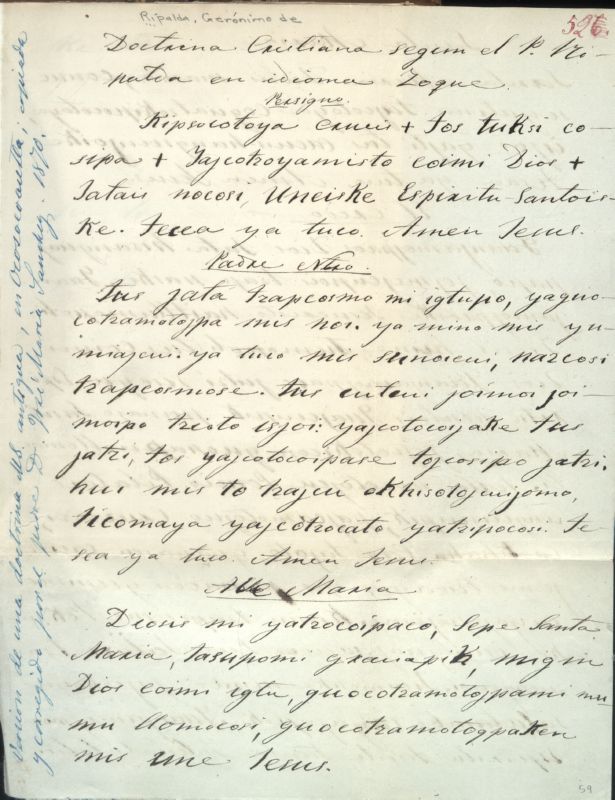 Ripalda, Gerónimo de
526
Doctrina Cristiana segun el P. Ri-
palda en idioma Zoque.
Persigno.
Kipsocotoya crucis + tos tuksi co-
sipa + Jajcotroyamisto coimi Dios +
Jatais nocosi, Uneiske Espiritu Santois-
ke. Jecea ya tuco. Amen Jesus.
Padre Ntro.
Tus jata trapcosmo mi igtupo, yaguo-
cotramotojpa mis noi. ya mino mis yu-
miajcui. ya tuco mis sunocui, nazcosi
trapcosmose. Tus cutcui jomna joi-
moipo trioto isjoi: yajcotocojake tus
jatri, tos yajcotocoipase tojcosipo jatri.
hui mis to trajcu okhisotojcuijomo,
ticomaya yajcotrocato yatripocosi. Je-
sea ya tuco. Amen Jesus.
Ave Maria
Diosis mi yatrocoipaco, Sepe Santa
Maria, tasupomi graciapik, migui
Dios coimi igtu, guocotramotojpami mu-
mu llomocosi, guocotramotogpaken
mis une Jesus.
Version de una doctrina MS. antigua, en Ocozocoautla; copiada
y corregida por el padre D. José Maria Sanchez. 1870.
59